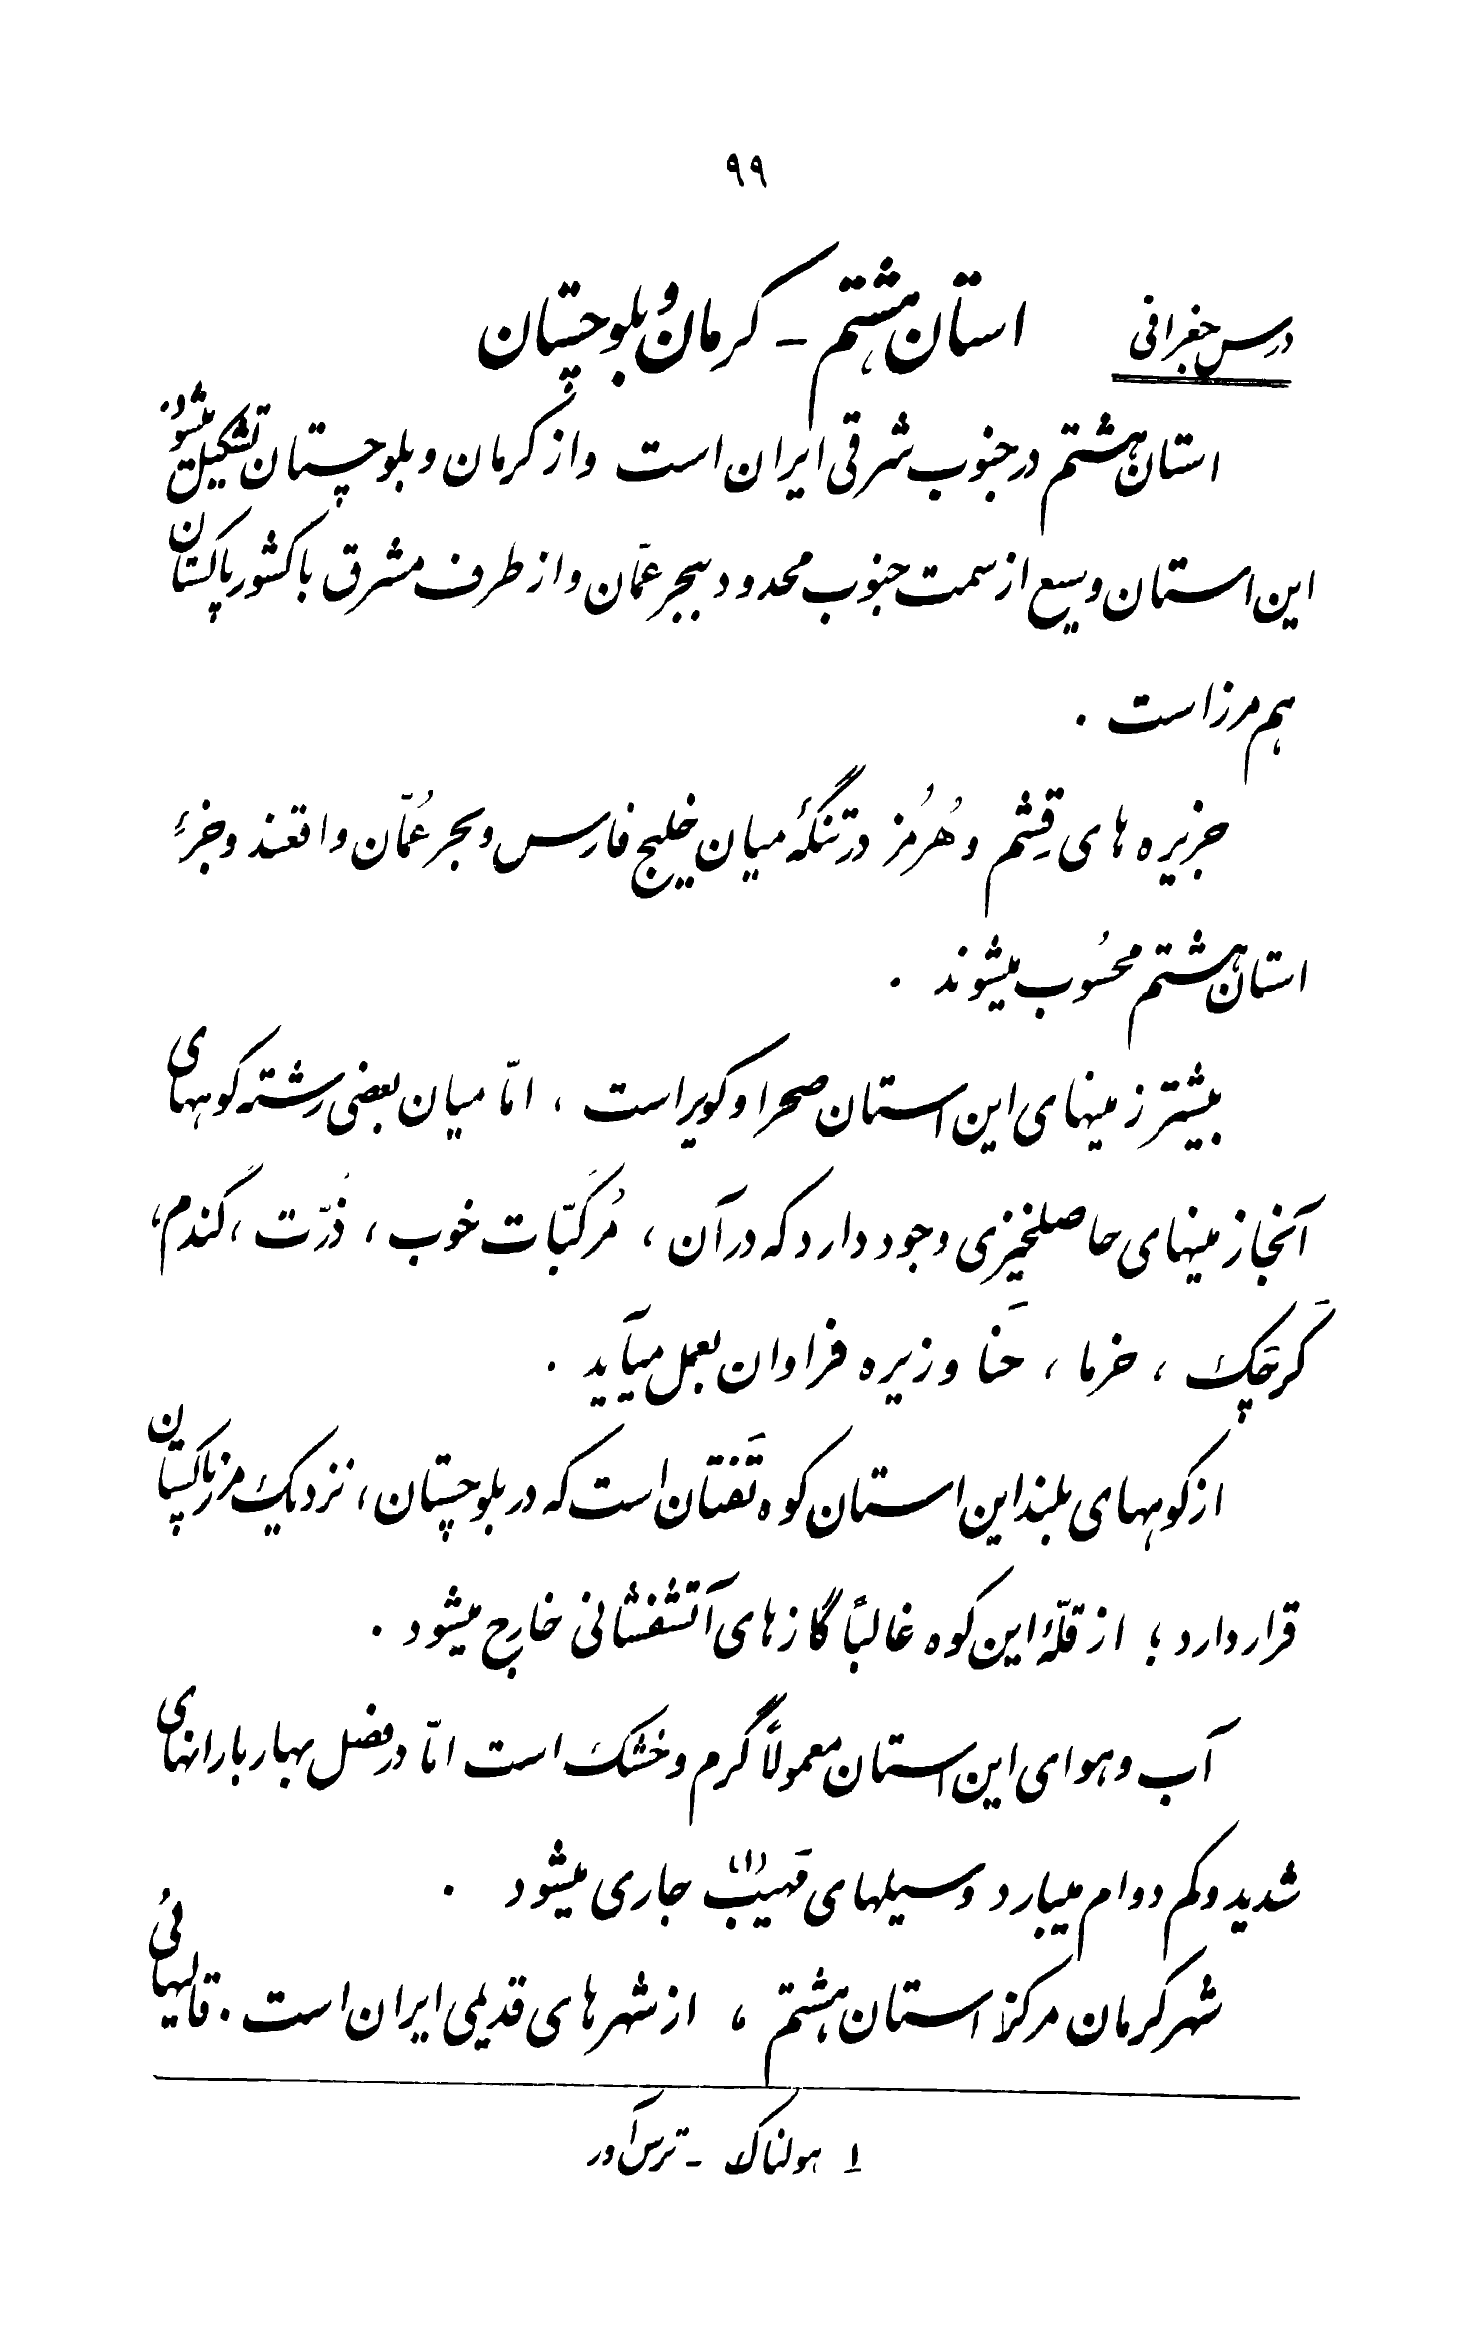 ۹۹
درس جغرافی
استان هشتم - کرمان و بلوچستان
استان هشتم در جنوب شرقی ایران است و از کرمان و بلوچستان تشکیل میشود.
این استان وسیع از سمت جنوب محدود ببحر عمّان و از طرف مشرق با کشور پاکستان
هم مرز است .
جزیره های قِشم و هُرمُز در تنگهٔ میان خلیج فارس و بحر عُمّان واقعند و جزءِ
استان هشتم محسُوب میشوند .
بیشتر زمینهای این استان صحرا و کویر است ، امّا میان بعضی رشته کوههای
آنجا زمینهای حاصلخیزی وجود دارد که در آن ، مُرکّبات خوب ، ذُرّت ، گندم ،
کَرچَک ، خرما ، حَنا و زیره فراوان بعمل میآید .
از کوههای بلند این استان کوه تَفتان است که در بلوچستان ، نزدیک مرز پاکستان
قرار دارد ؛ از قلّهٔ این کوه غالباً گازهای آتشفشانی خارج میشود .
آب و هوای این استان معمولاً گرم و خشک است امّا در فصل بهار بارانهای
شدید و کم دوام میبارد و سیلهای مَهیب(۱) جاری میشود .
شهر کرمان مرکز استان هشتم ، از شهرهای قدیمی ایران است . قالیهائی
۱ هولناک - ترس آور